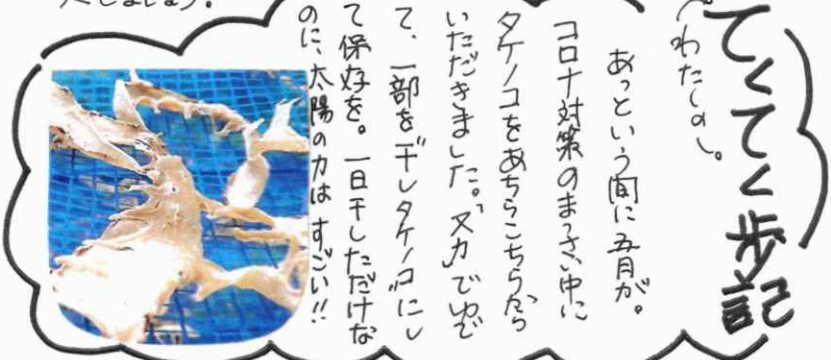 てくてく歩記
わたしの。
あっという間に五月が。
コロナ対策のまっさい中に
タケノコをあちらこちらから
いただきました。「ヌカ」でゆで
て、一部を"干しタケノコ"にし
て保存を。一日干しただけな
のに、太陽の力は すごい!!